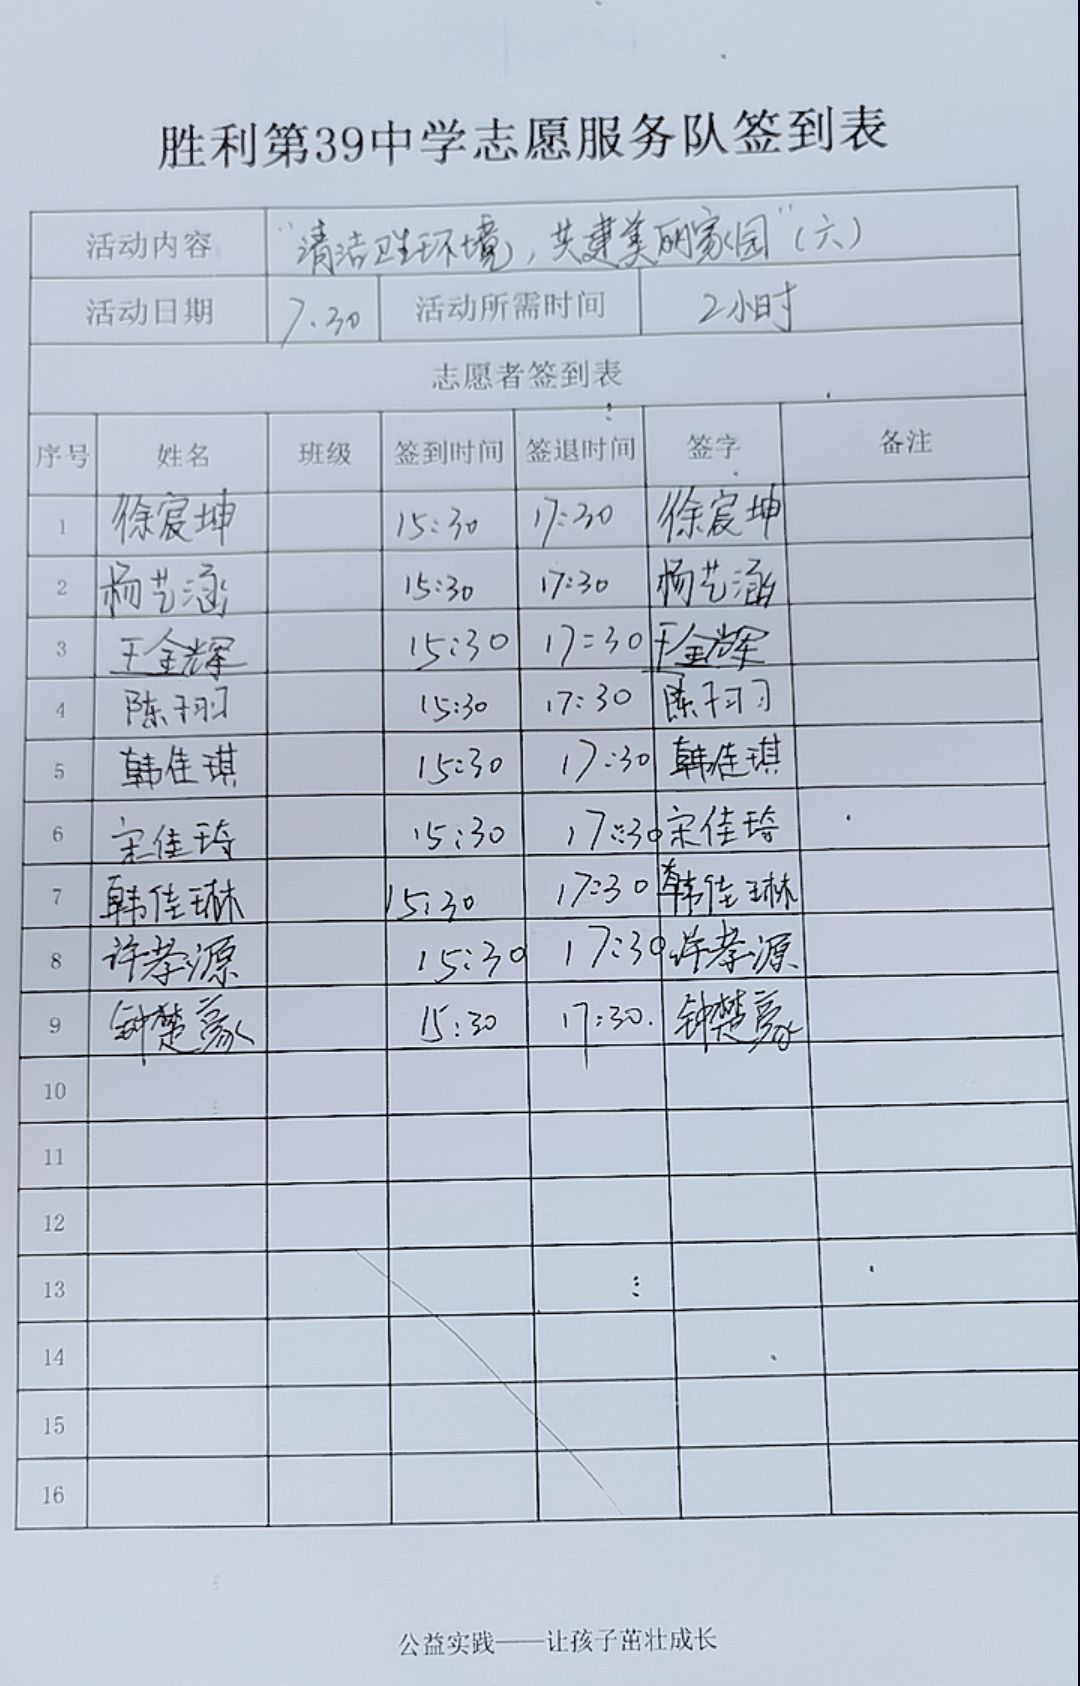 胜利第39中学志愿服务队签到表
活动内容 "清洁卫生环境，共建美丽家园"（六）
活动日期 7.30 活动所需时间 2小时
志愿者签到表
序号 姓名 班级 签到时间 签退时间 签字 备注
1 徐宸坤 15:30 17:30 徐宸坤
2 杨艺涵 15:30 17:30 杨艺涵
3 王金辉 15:30 17:30 王金辉
4 陈子羽 15:30 17:30 陈子羽
5 韩佳琪 15:30 17:30 韩佳琪
6 宋佳琦 15:30 17:30 宋佳琦
7 韩佳琳 15:30 17:30 韩佳琳
8 许孝源 15:30 17:30 许孝源
9 钟楚豪 15:30 17:30. 钟楚豪
10
11
12
13
14
15
16
公益实践——让孩子茁壮成长